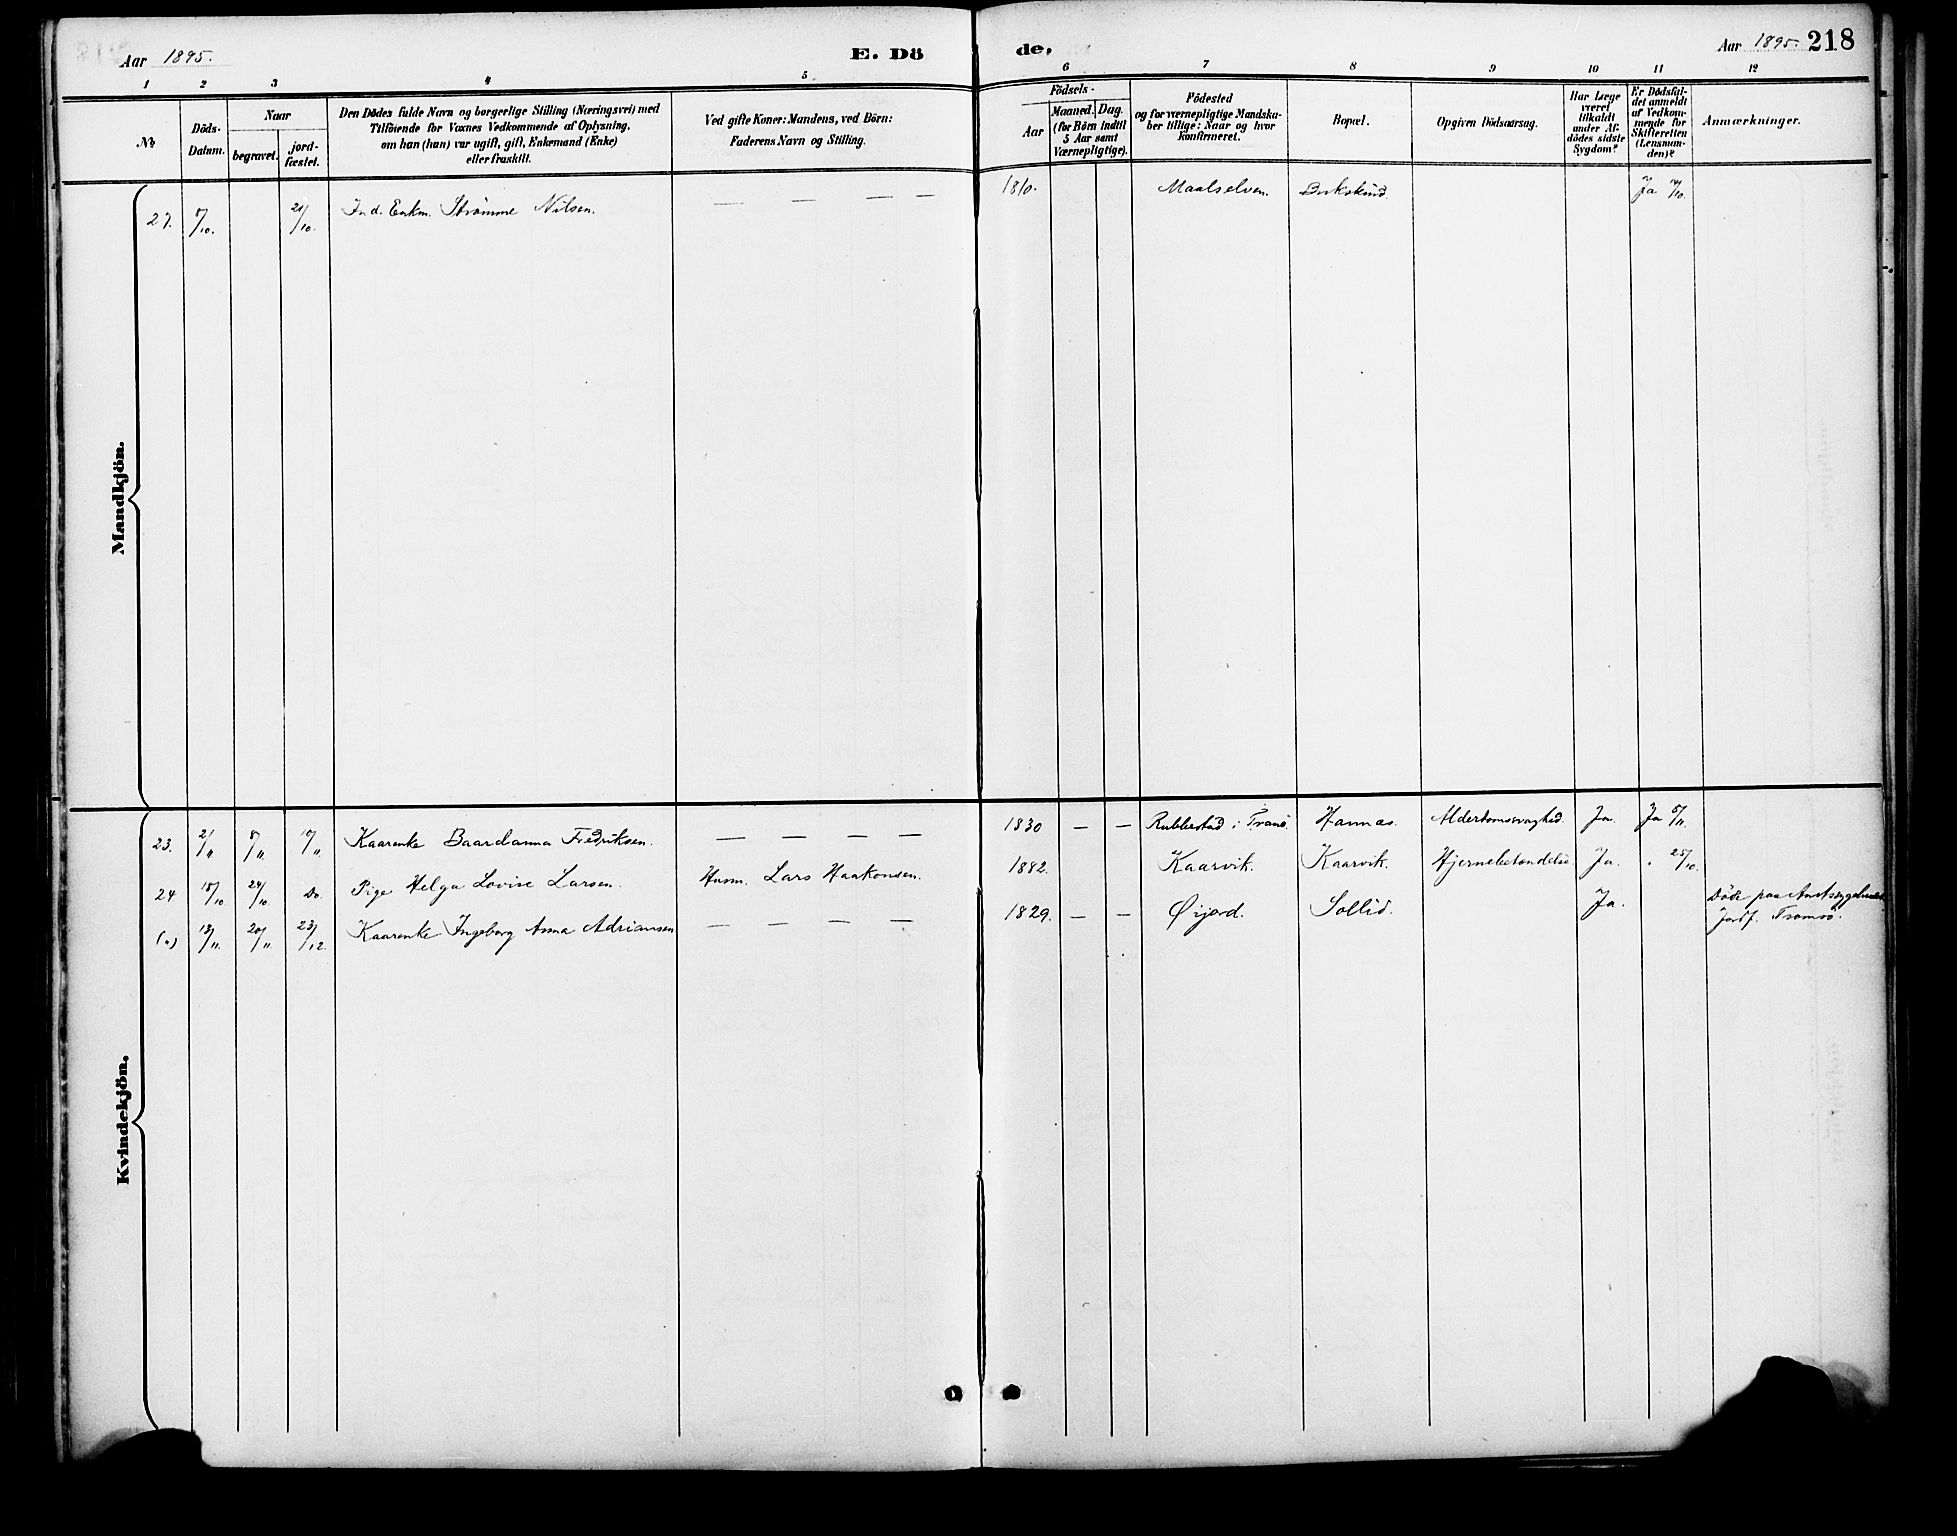 Aar 1895. E. Dö de, Aar 1895. 218
1 2 3 4 5 6 7 8 9 10 11 12
No
Döds-Datum.
Naar
begravet.
jord-fæstet.
Den Dödes fulde Navn og borgerlige Stilling (Næringsvei) med
Tilföiende for Voxnes Vedkommende af Oplysning,
om han (hun) var ugift, gift, Enkemand (Enke)
eller fraskilt.
Ved gifte Koner: Mandens, ved Börn:
Faderens Navn og Stilling.
Födsels-
Aar
Maaned. Dag.
(for Börn indtil
5 Aar samt
Værnepligtige).
Födested
og for værnepligtige Mandska-
ber tillige: Naar og hvor
konfirmeret.
Bopæl.
Opgiven Dödsaarsag.
Har Læge
været
tilkaldt
under Af-
dödes sidste
Sygdom?
Er Dödsfal-
det anmeldt
af Vedkom-
mende for
Skifteretten
(Lensman-
den)?
Anmærkninger.
Mandkjön.
27. /10. 21/10. Ind. Enkm. Strømme Nilsen. — — — — 1810. Maalselven. Ja /10
Kvindekjön.
23. 2/11 8/11. /11. Kaarenke Baardanna Fredriksen. — — — — 1830 — — Rubbestad i Tranö. Hannæs. Alderdomssvaghed. Ja. Ja 5/11.
24 15/10. 24/10. Do. Pige Helga Lovise Larsen. Husm. Lars Haakonsen. 1882. Kaarvik. Kaarvik. Hjernebetændelse Ja. " 25/10.
(a) 13/11. 20/11. 23/12. Kaarenke Ingeborg Anna Adriansen — — — — 1829. — — Øijord. Sollid. Ja. Döde paa Amtssygehuset
Jordf. Tromsö.